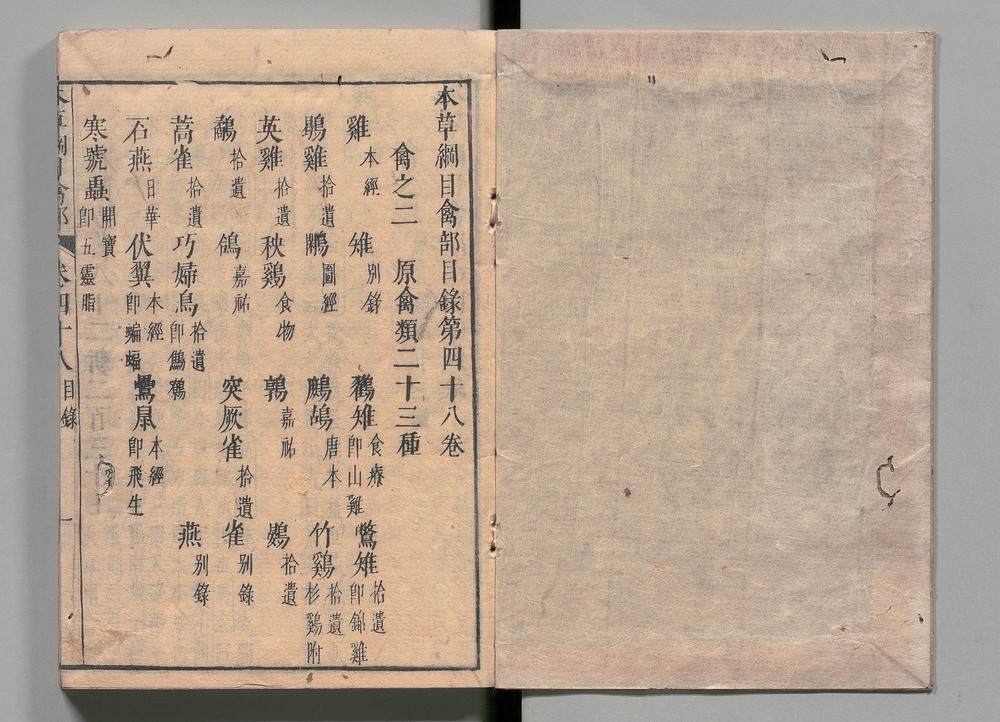 本草綱目禽部目錄第四十八卷
禽之二 原禽類二十三種
雞 本經 雉 別錄 鸐雉 食療 即山雞 鷩雉 拾遺 即錦雞
鶡雞 拾遺 鷴 圖經 鷓鴣 唐本 竹鷄 拾遺 杉鷄附
英雞 拾遺 秧鷄 食物 鶉 嘉祐 鷃 拾遺
鷸 拾遺 鴿 嘉祐 突厥雀 拾遺 雀 別錄
蒿雀 拾遺 巧婦鳥 拾遺 即鷦鷯 燕 別錄
石燕 日華 伏翼 本經 即蝙蝠 鸓鼠 本經 即飛生
寒號蟲 開寶 即五靈脂
本草綱目禽部 卷四十八 目錄 一